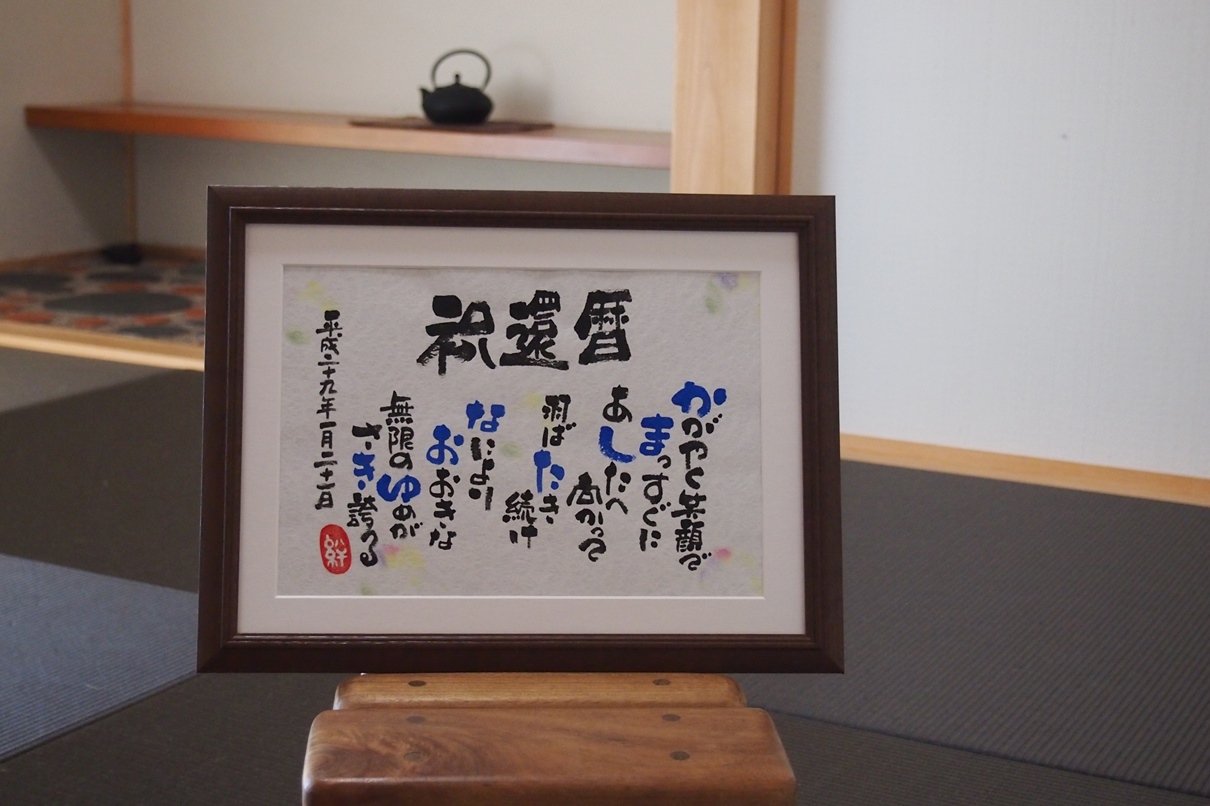 祝還暦
かがやく笑顔で
まっすぐに
あしたへ
向かって
羽ばたき
続け
なにより
おおきな
無限のゆめが
さき誇つる
平成二十九年一月二十一日
絆